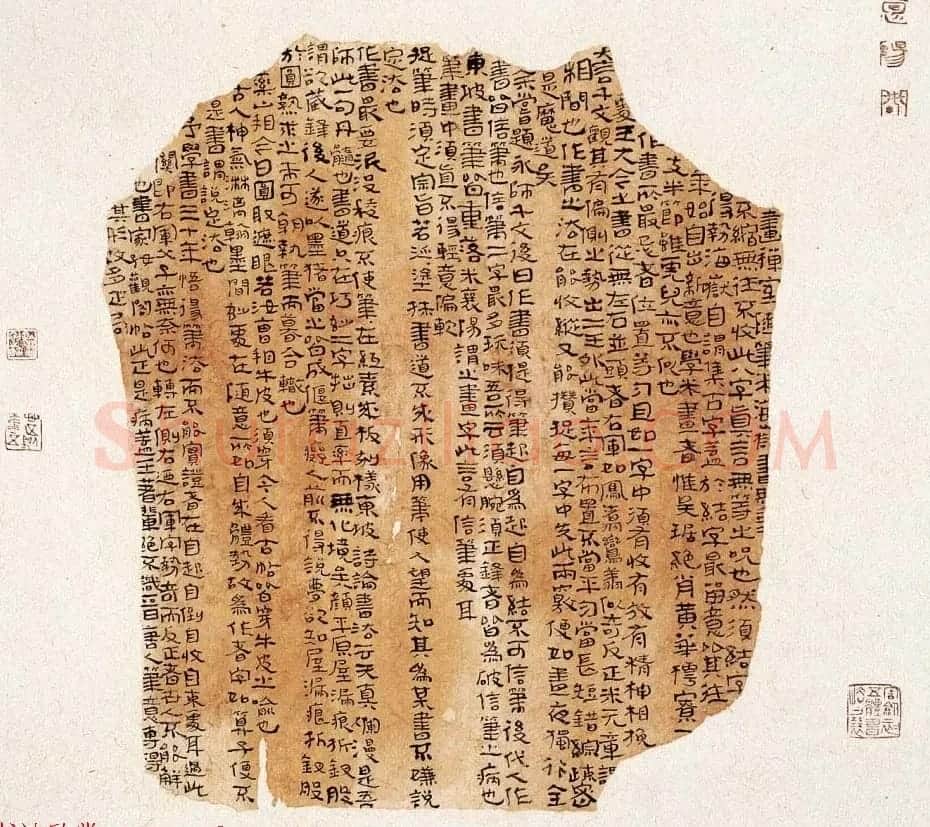 畫禪室隨筆米海岳書無垂
不縮無往不收此八字真言無等等咒也然須結字
得勢海嶽自謂集古字盖於結字最留意比其晚
年始自出新意也學米書者惟吳琚絕肖黄華樗寮一
支半節雖虎兒亦不似也
作書所最忌者位置等勻且如一字中須有收有放有精神相挽
處王大令之書從無左右並頭者右軍如鳳翥鸞翥似奇反正米元章謂
大年千文觀其有偏側之勢出二王外此當言布置不當平勻當長短錯綜疏密
相間也作書之法在能收縱又能攢捉每一字中失此兩竅便如晝夜獨行全
是魔道矣
余嘗題永師千文後曰作書須提得筆起自為起自為結不可信筆後代人作
書皆信筆也信筆二字最多玩味吾所云須懸腕須正鋒者皆為破信筆之病也
東坡書筆皆重落米襄陽謂之畫字此言有信筆處耳
筆畫中須直不得輕意偏軟
捉筆時須定宗旨若泛塗抹書道不成形像用筆使人望而知其為某書不嫌說
定法也
作書最要泯沒稜痕不使筆在紅素成板刻樣東坡詩論書法云天真爛漫是吾
師此一句丹髓也書道只在巧妙二字拙則直率而無化境矣顏平原屋漏痕折釵股
謂欲藏鋒後人遂以墨猪當之皆成偃筆癡人前不得說夢欲知屋漏痕折釵股
於圓熟求之未可朝執筆而暮合轍也
藥山相合曰圖取遮眼若汝曹相牛皮也須穿今人看古帖皆穿牛皮之喻也
古人神氣淋漓翰墨間妙處在隨意所如自成體勢故為作者字如算子便不
是書謂說定法也
予學書三十年悟得筆法而不能實證者在自起自倒自收自束處耳過此
關即右軍父子亦無奈何也轉左側右乃右軍字勢奇而反正者世人不能解
也書家好觀閣帖此正是病盖王著輩絕不識晉唐人筆意專得
其形故多正局